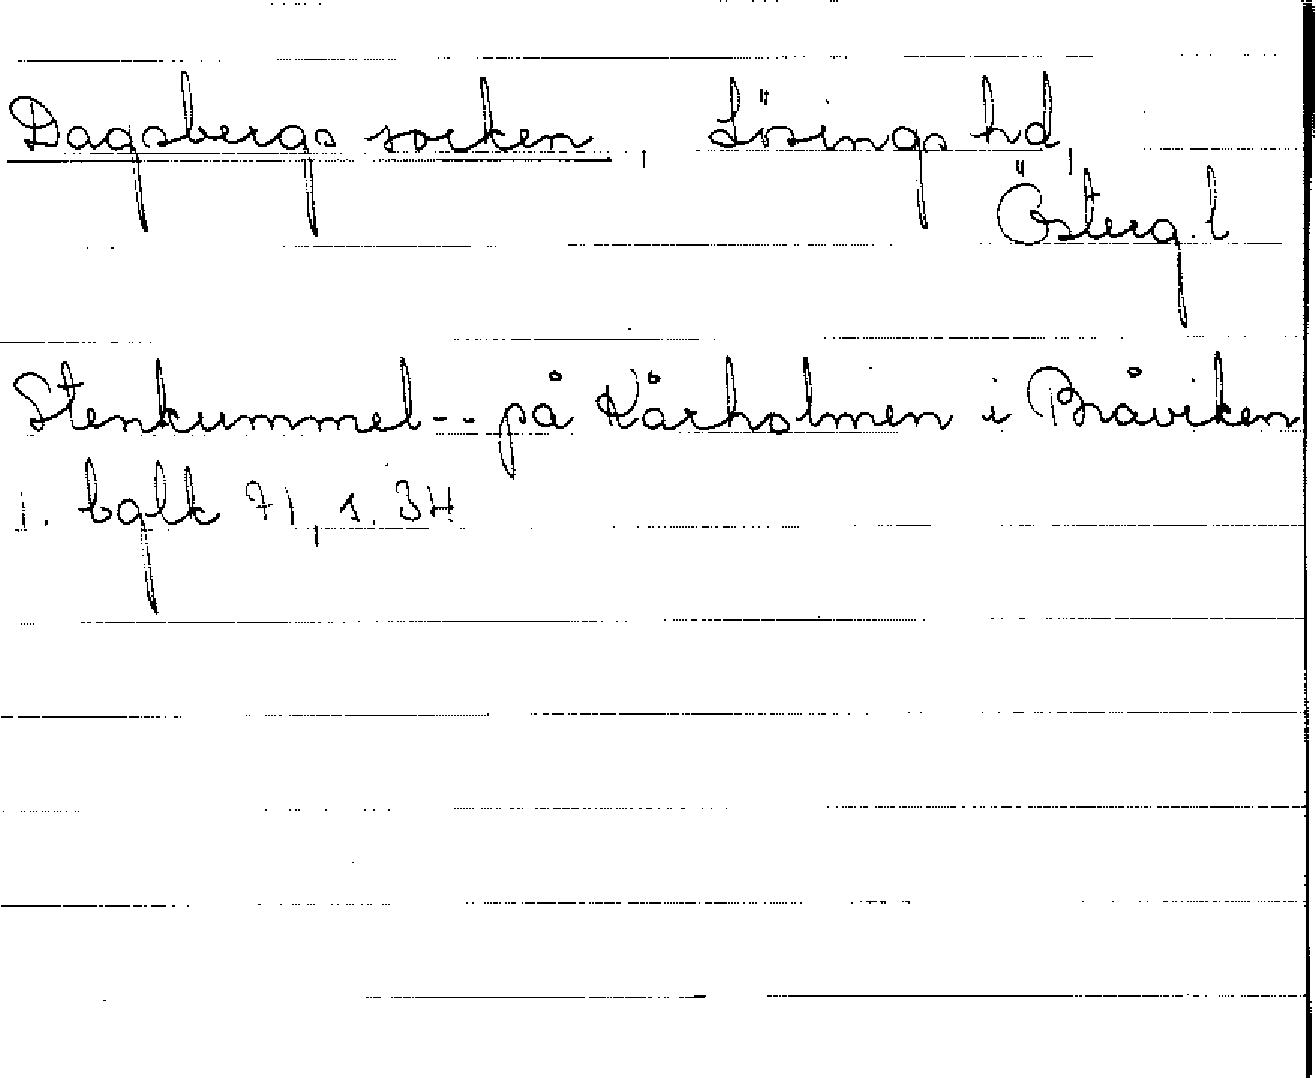 Dagsbergs socken, Lösings hd,
Österg. l
Stenkummel -- på Kårholmen i Bråviken
i. bglk 71, s. 34